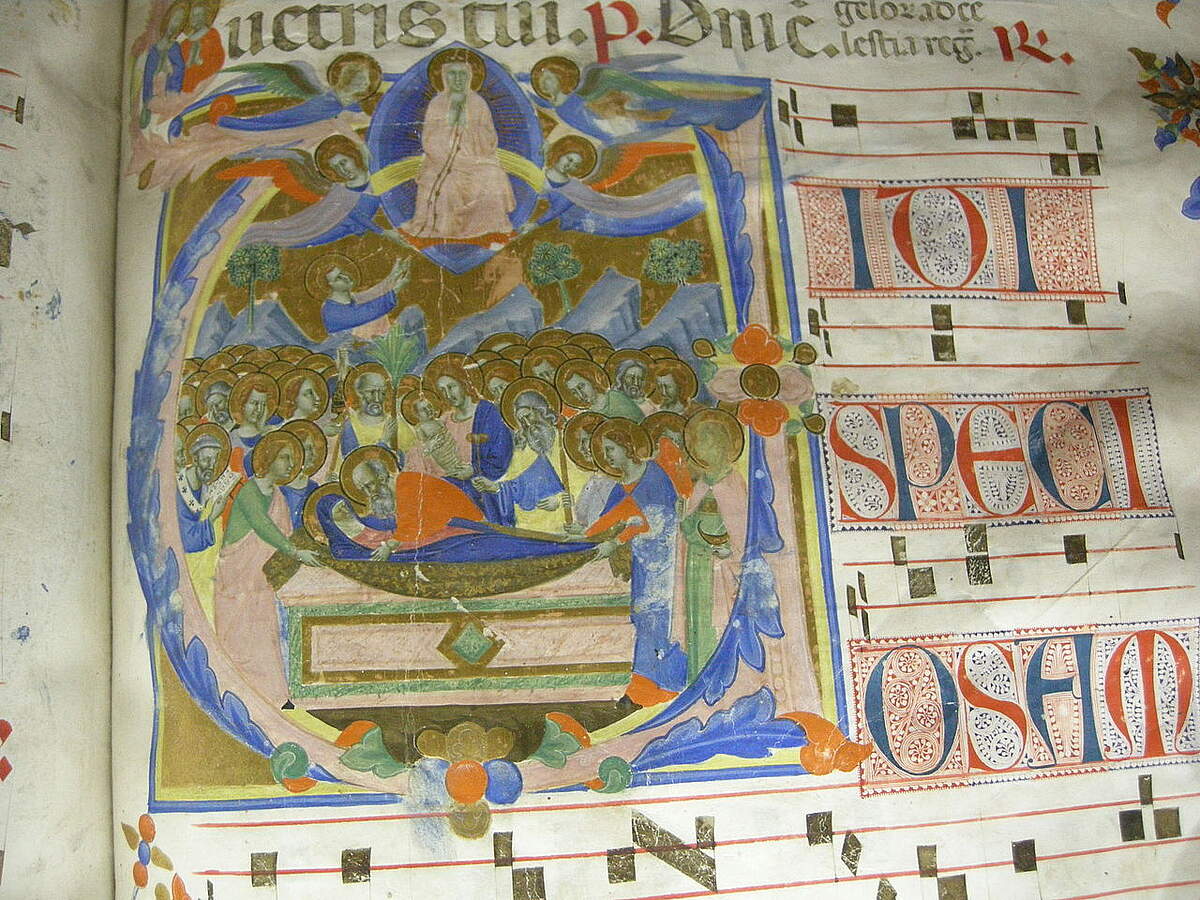 uectris tui. p. Dnic̄. gelor ad ce
lestia reg̃. R.
IDI
SPECI
OSAM